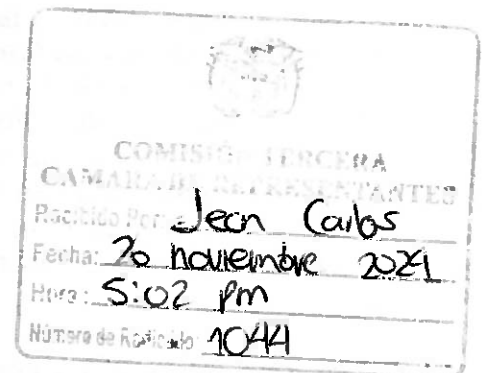 COMISIÓN TERCERA
CAMARA DE REPRESENTANTES
Recibido Por: Jean Carlos
Fecha: 20 noviembre 2024
Hora: 5:02 pm
Número de Radicado 1044